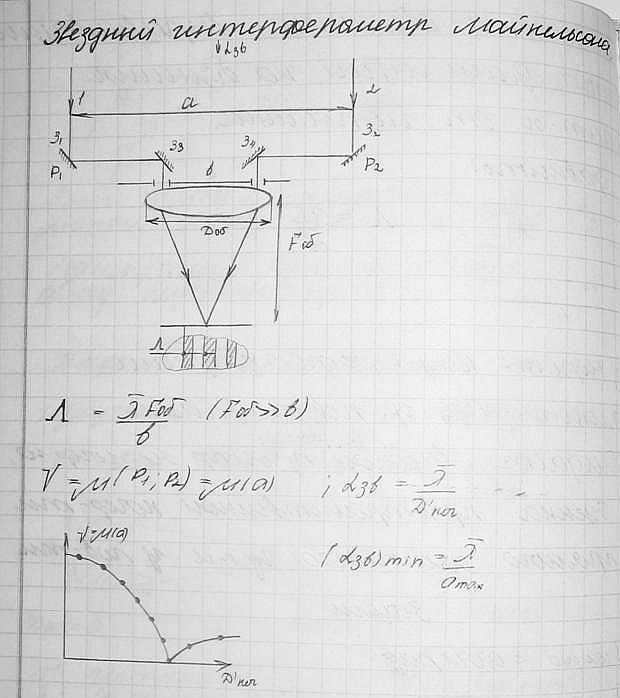 Звездный интерферометр Майкельсона
↓αзв
1
2
a
З₁
З₃
З₄
З₂
P₁
в
P₂
Dоб
Fоб
Λ
Λ = λ̄ Fоб / в (Fоб>>в)
V = μ(P₁; P₂) = μ(a) ; αзв = λ̄ / D'ког
V=μ(a)
(αзв)min = λ̄ / amax
D'ког